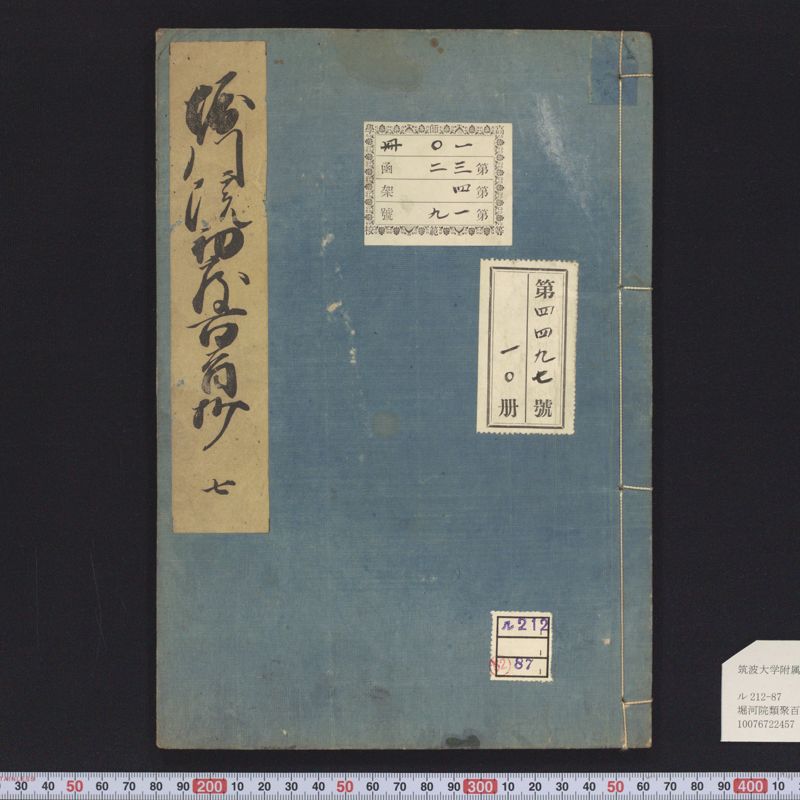 堀川院初度百首抄
七
一〇冊
第三二函
第四架
第一九號
第四四九七號
一〇册
ル212
87
筑波大学附属
ル 212-87
堀河院類聚百
10076722457
30 40 50 60 70 80 90 200 10 20 30 40 50 60 70 80 90 300 10 20 30 40 50 60 70 80 90 400 10